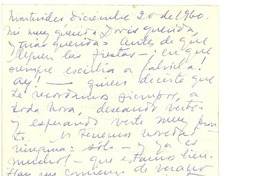 Montevideo diciembre 20 de 1960.
Mi muy querida Doris querida,
y más querida: antes de que
lleguen las fiestas — en que
siempre escribía a Gabriela!
ay! — quiero decirte que
te recordamos siempre, a
toda hora, deseando verte
y esperando verte muy
pronto. No tenemos novedad
ninguna: sólo — y ya es
mucho! — que estamos bien.
Han sus comienzos de verano